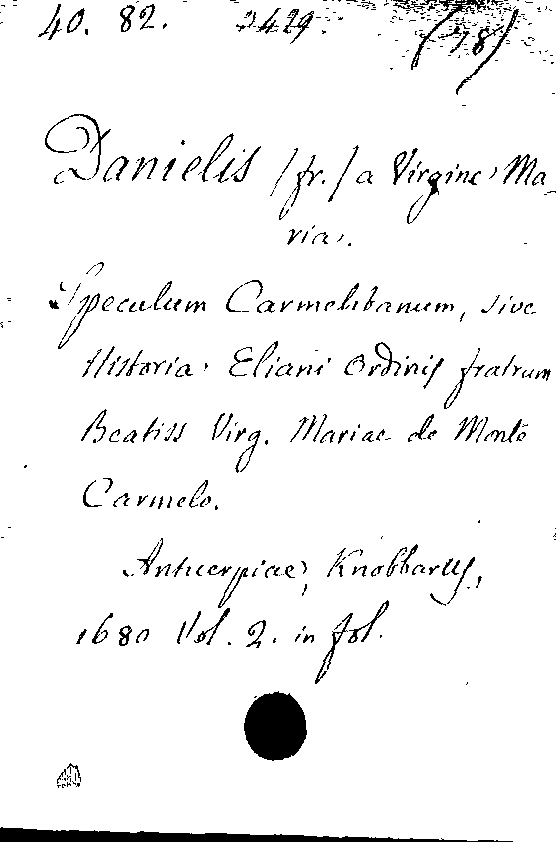 40. 82. 3429. (78)
Danielis (fr.) a Virgine Ma-
ria.
Speculum Carmelitanum, sive
Historia Eliani Ordinis fratrum
Beatiss Virg. Mariae de Monte
Carmelo.
Antuerpiae, Knobbarus,
1680 Vol. 2. in fol.